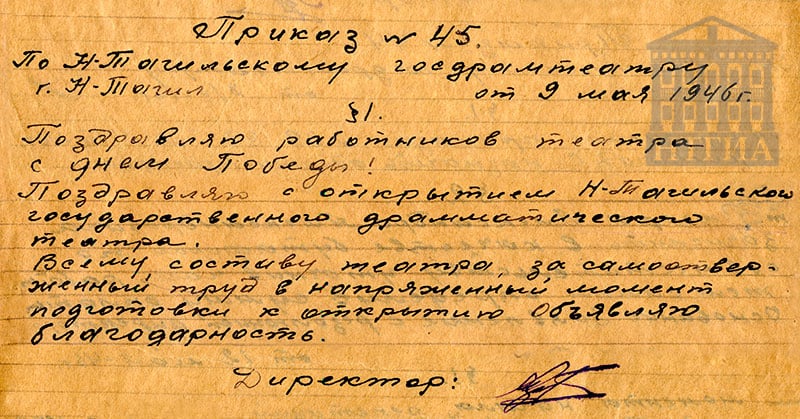 Приказ № 45.
По Н-Тагильскому госдрамтеатру
г. Н-Тагил от 9 мая 1946 г.
§1.
Поздравляю работников театра
с днем Победы!
Поздравляю с открытием Н-Тагильского
государственного драмматического
театра.
Всему составу театра, за самоотвер-
женный труд в напряженный момент
подготовки к открытию Объявляю
благодарность.
Директор:
НТГИА